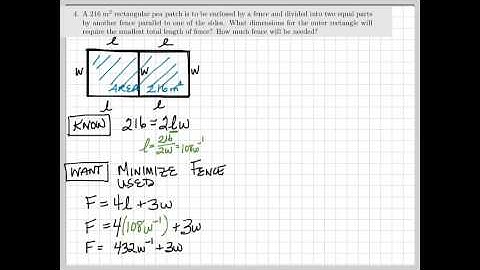 4. A 216 m² rectangular pea patch is to be enclosed by a fence and divided into two equal parts
by another fence parallel to one of the sides. What dimensions for the outer rectangle will
require the smallest total length of fence? How much fence will be needed?
l l
W W W
AREA 216m²
l l
KNOW 216 = 2lw
l = 216/2w = 108w⁻¹
WANT MINIMIZE FENCE
USED
F = 4l + 3w
F = 4(108w⁻¹) + 3w
F = 432w⁻¹ + 3w